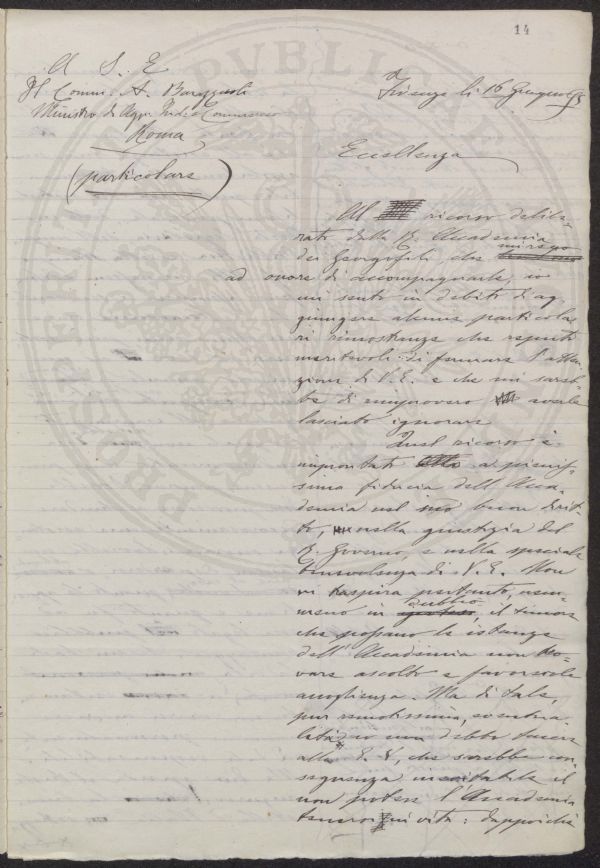 14
A S. E.
Il Comm. A. Barazzuoli
Ministro di Agr. Ind. e Commercio
Roma
(particolare)
Firenze li 16 Giugno 95
Eccellenza
Al ricorso delibe-
rato dalla R. Accademia
dei Georgofili, che mi reco
ad onore di accompagnarle, io
mi sento in debito di ag-
giungere alcune particola-
ri rimostranze che reputo
meritevoli di fermare l'atten-
zione di V. E. e che mi sareb-
be di rimprovero averle
lasciato ignorare
Quel ricorso è
improntato a pienis-
sima fiducia dell'Acca-
demia nel suo buon dirit-
to, nella giustizia del
R. Governo, e nella speciale
benevolenza di V. E. Non
vi traspira pertanto, nem-
meno in dubbio, il timore
che possano le istanze
dell'Accademia non tro-
vare ascolto e favorevole
accoglienza. Ma di tale,
pur remotissima, eventua-
lità io non debbo tacere
alla E. V. che sarebbe con-
seguenza inevitabile il
non potere l'Accademia
tenersi in vita: dappoichè
PUBLICAE
PROSPERITATI